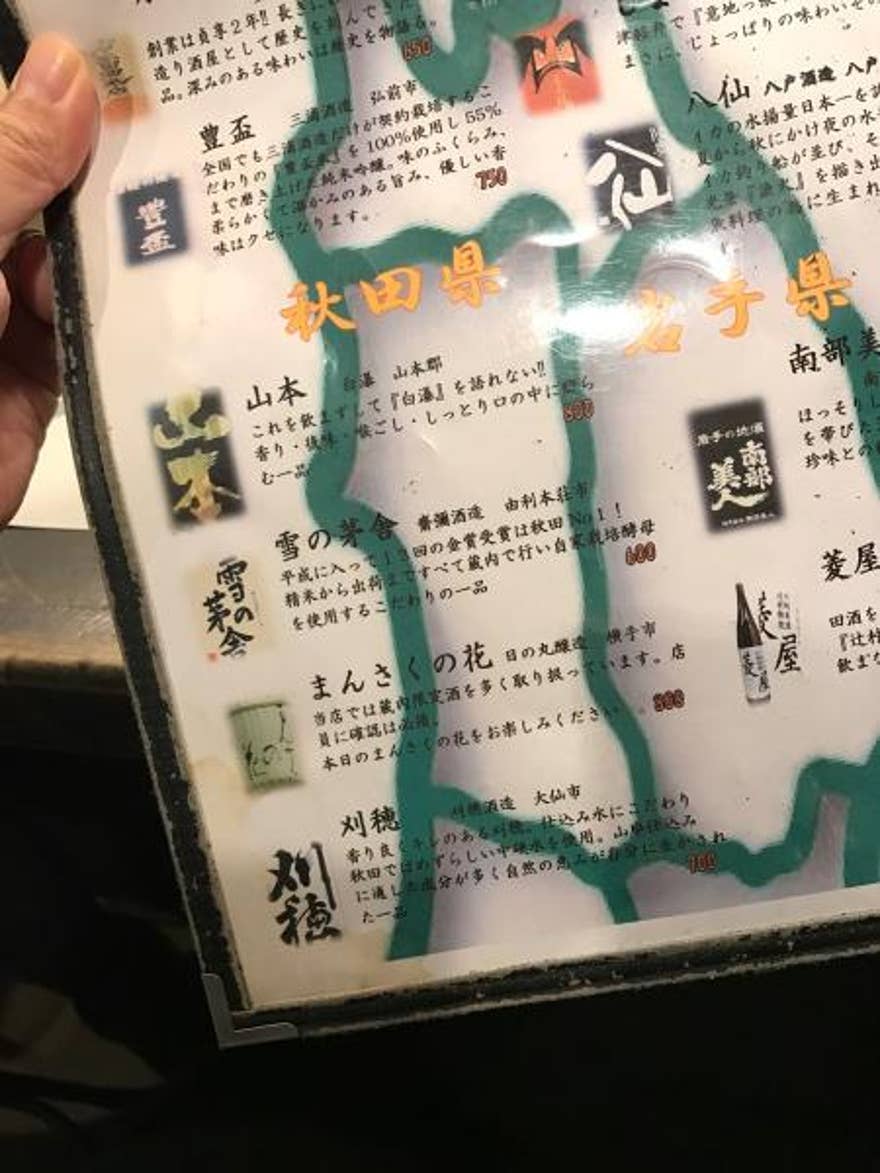 創業は貞享2年!! 長き
造り酒屋として歴史を刻んできた
品。深みのある味わいは歴史を物語る。
650
豊盃 三浦酒造 弘前市
全国でも三浦酒造だけが契約栽培するこ
だわりの『豊盃米』を100%使用し55%
まで磨き上げた純米吟醸。味のふくらみ、
柔らかくて深かみのある旨み、優しい香
味はクセになります。
750
豊盃
津軽弁で『意地っ張
まさに、じょっぱりの味わいぜ
八仙 八戸酒造 八戸
イカの水揚量日本一を誇
夏から秋にかけ夜の水
イカ釣り船が並び、そ
光景『漁火』を描き出
魚料理の為に生まれ
八仙
秋田県
岩手県
山本 白瀑 山本郡
これを飲まずして『白瀑』を語れない!!
香り・後味・喉ごし・しっとり口の中に
む一品
800
山本
雪の茅舎 齋彌酒造 由利本荘市
平成に入って13回の金賞受賞は秋田No1!
精米から出荷まですべて蔵内で行い自家栽培酵母
を使用するこだわりの一品
680
雪の茅舎
まんさくの花 日の丸醸造 横手市
当店では蔵内限定酒を多く取り扱っています。店
員に確認は必須。
本日のまんさくの花をお楽しみください
800
刈穂 刈穂酒造 大仙市
香り良くキレのある刈穂。仕込み水にこだわり
秋田ではめずらしい中硬水を使用。山廃仕込み
に適した成分が多く自然の恵みが存分に生かされ
た一品
700
刈穂
南部美
南
ほっそりし
を帯びた
珍味との
岩手の地酒
南部美人
菱屋
田酒を
『辻村
飲まな
菱屋